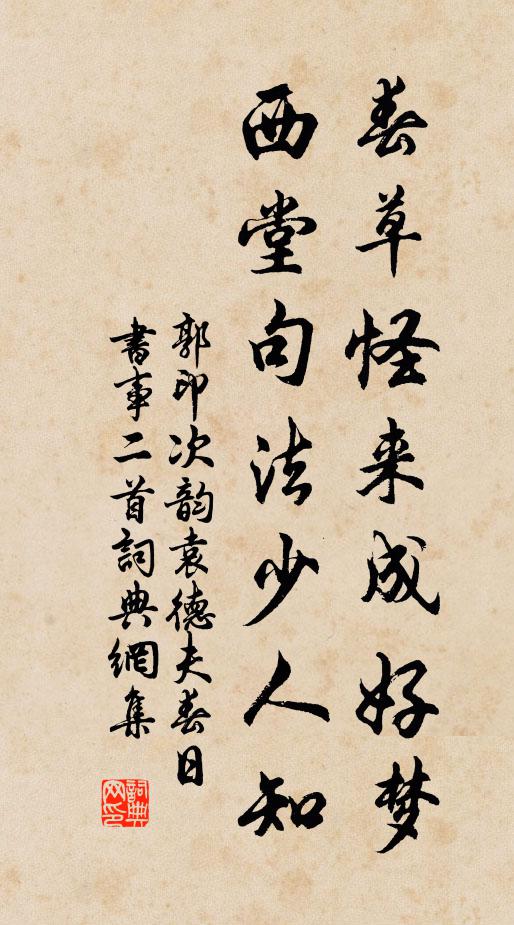 春草怪来成好梦
西堂句法少人知
郭印次韵袁德夫春日
書事二首詞典網集
詞典网印